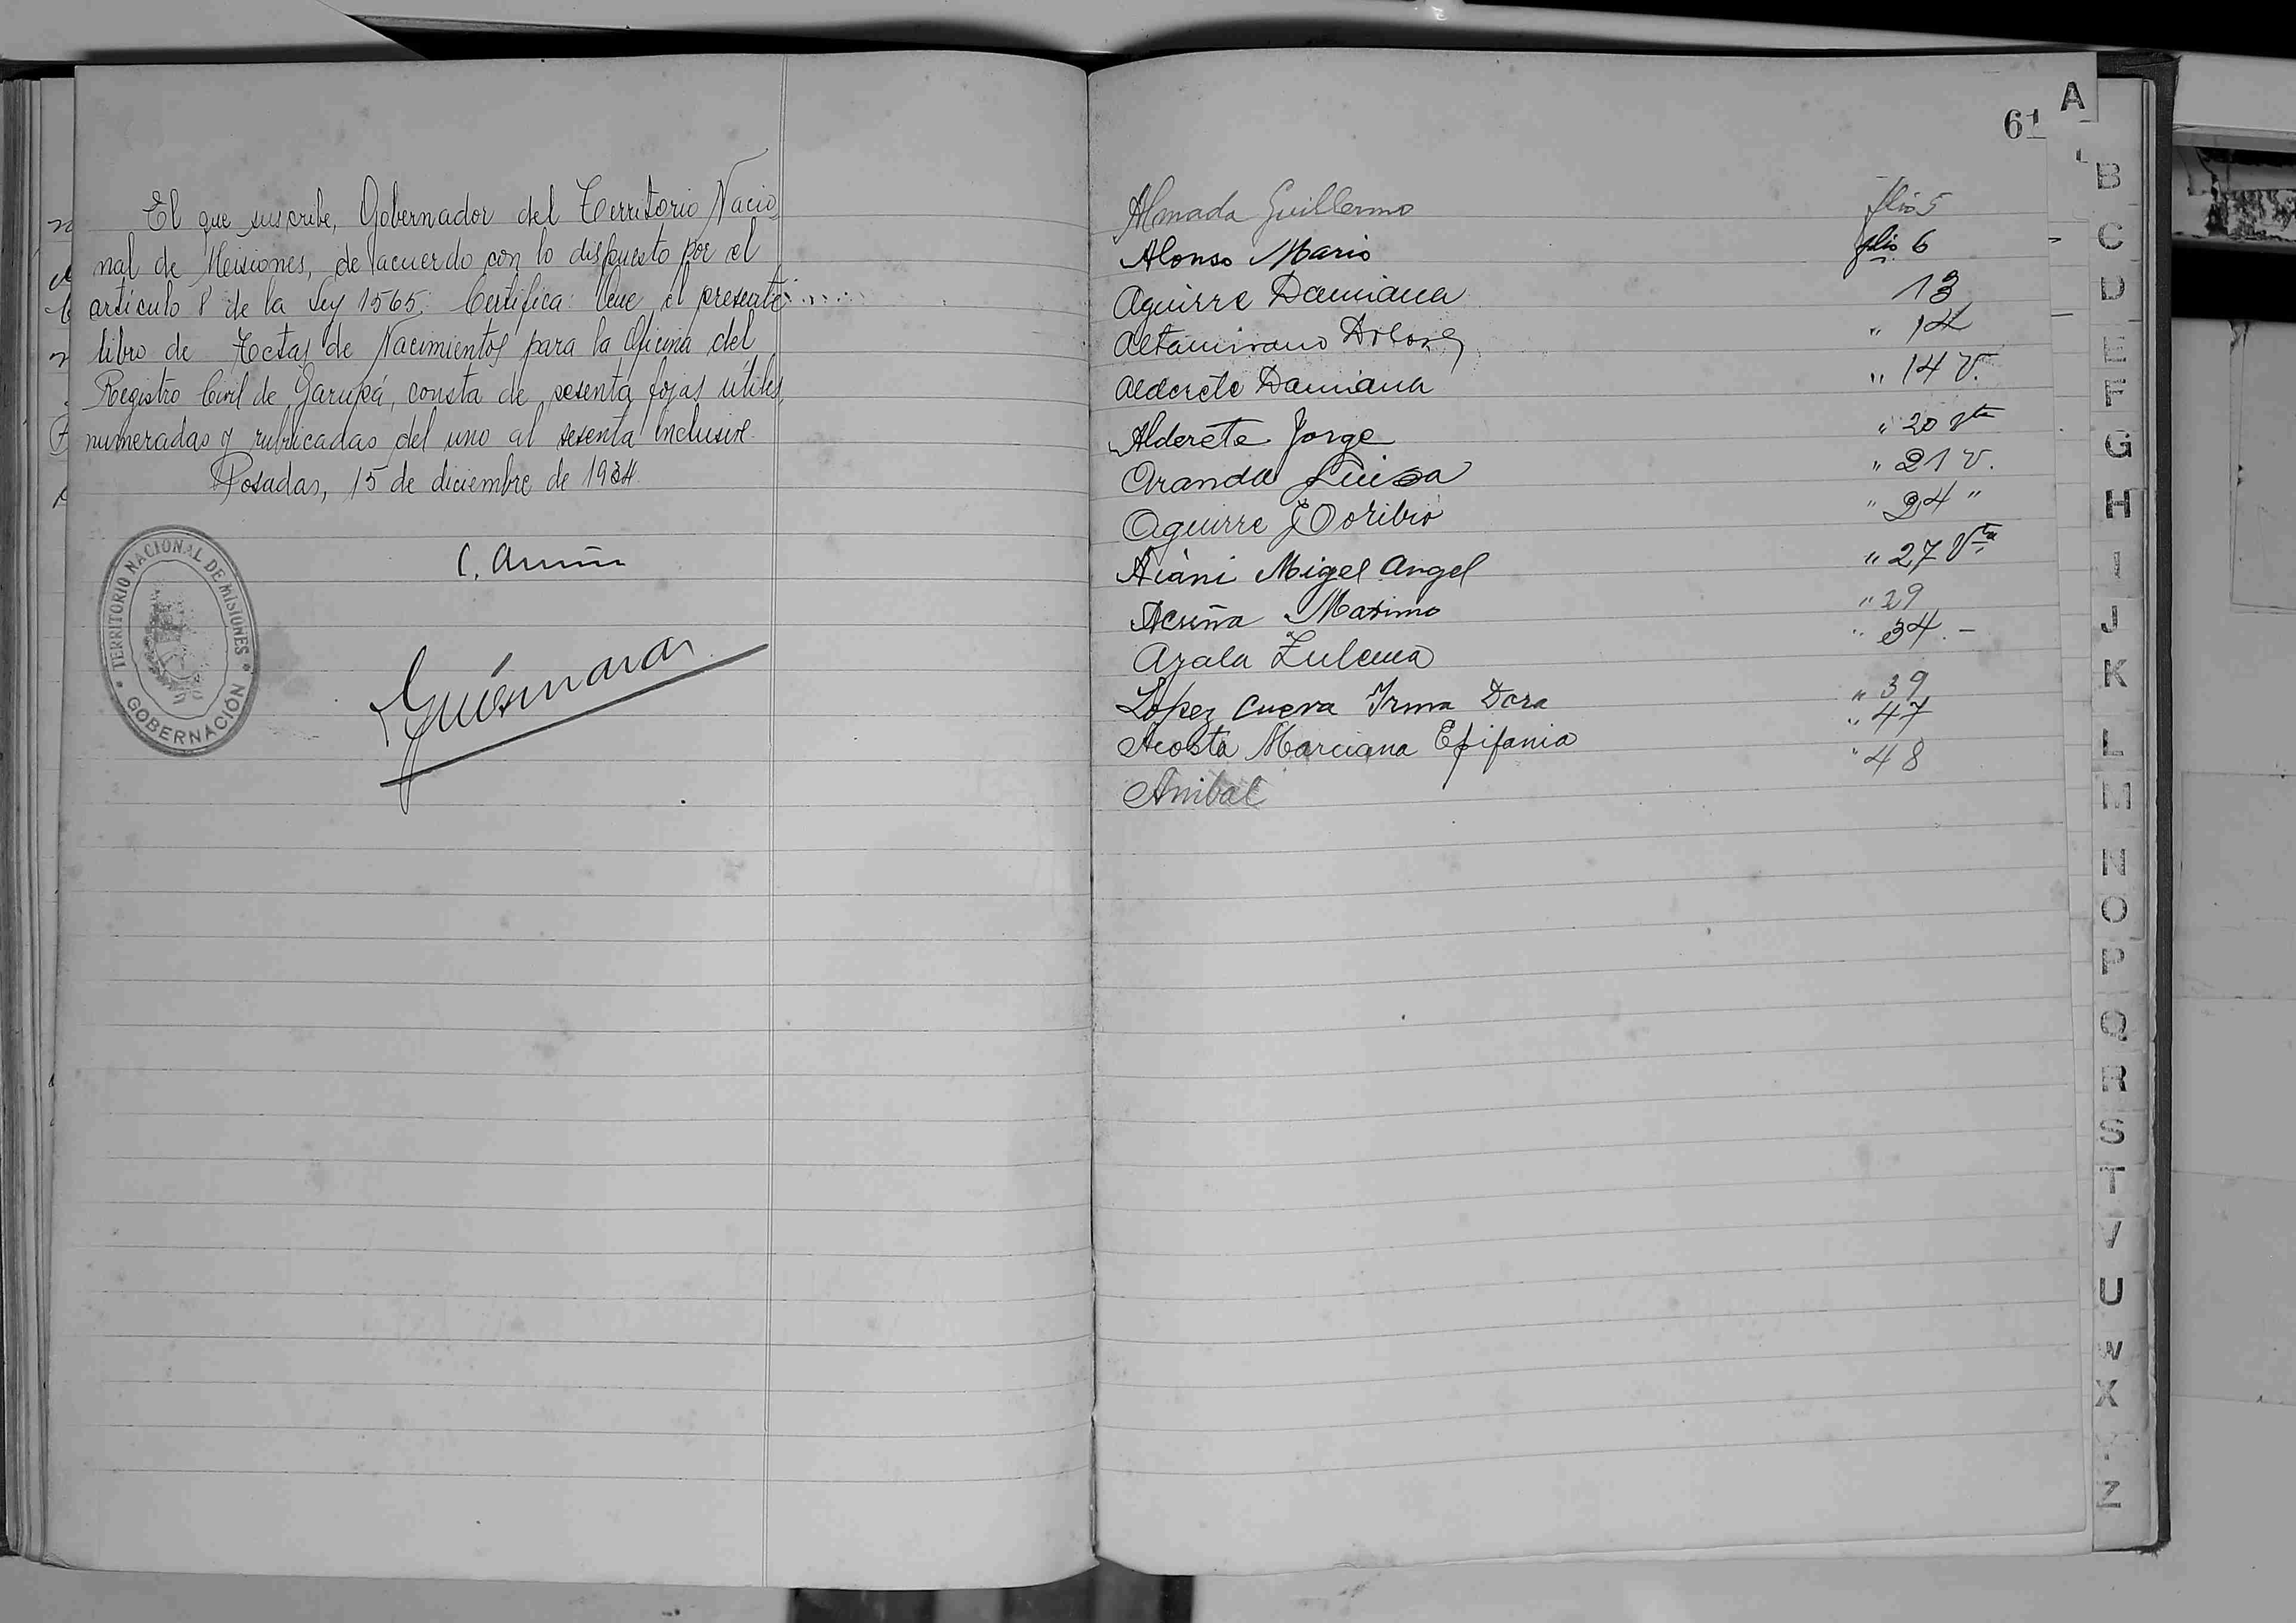 El que suscribe, Gobernador del Territorio Nacio
nal de Misiones, de acuerdo con lo dispuesto por el
artículo 8 de la Ley 1565: Certifica: Que el presente
libro de Actas de Nacimientos para la Oficina del
Registro Civil de Garupá, consta de sesenta fojas útiles,
numeradas y rubricadas del uno al sesenta inclusive.
Posadas, 15 de diciembre de 1934.
TERRITORIO NACIONAL DE MISIONES
GOBERNACIÓN
61
Almada Guillermo folio 5
Alonso Mario folio 6
Aguirre Damiana 13
Altamirano " 14
Alderete Damiana " 14 V.
Alderete Jorge " 20 Vta
Aranda Luisa " 21 V.
Aguirre Toribio " 24 "
Aiani Migel Angel " 27 Vta
Acuña Maximo " 29
Ayala Zulema " 34. -
Lopez Cueva Irma Dora " 39
Acosta Marciana Epifania " 47
Anibal " 48
A
B
C
D
E
F
G
H
I
J
K
L
M
N
O
P
Q
R
S
T
V
U
W
X
Y
Z